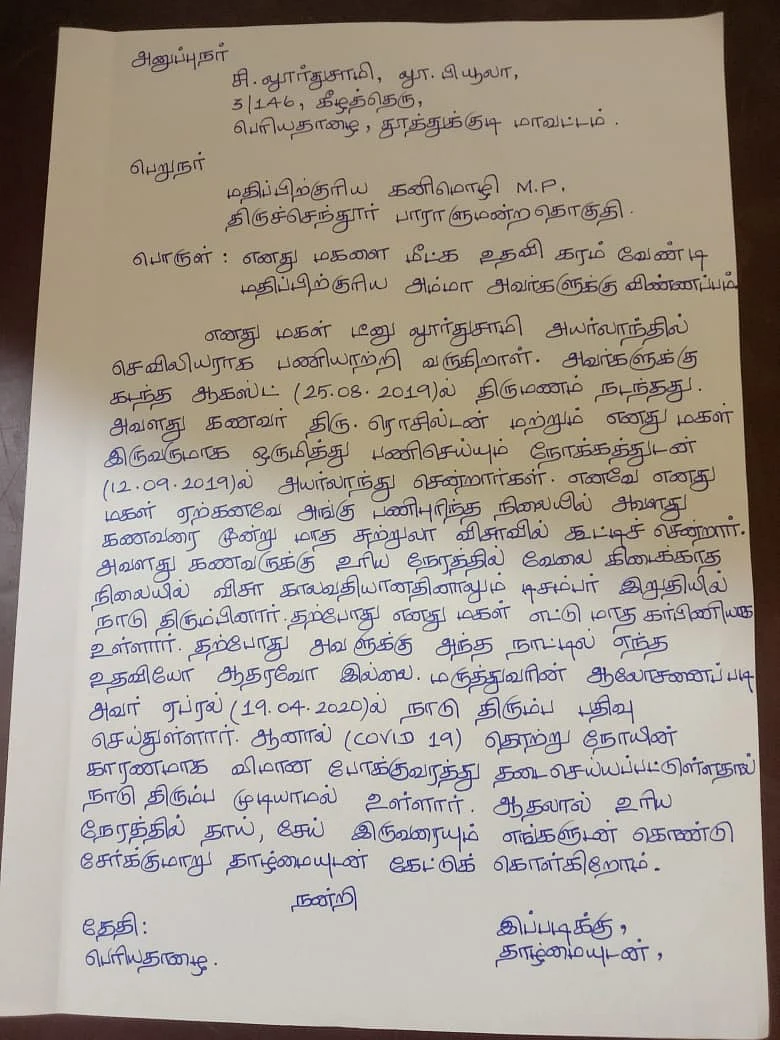 அனுப்புநர்
சி. லூர்துசாமி, லூ. பியூலா,
3/146, கீழத்தெரு,
பெரியதாழை, தூத்துக்குடி மாவட்டம்.
பெறுநர்
மதிப்பிற்குரிய கனிமொழி M.P.
திருச்செந்தூர் பாராளுமன்ற தொகுதி.
பொருள் : எனது மகளை மீட்க உதவி கரம் வேண்டி
மதிப்பிற்குரிய அம்மா அவர்களுக்கு விண்ணப்பம்
எனது மகள் டீனு லூர்துசாமி அயர்லாந்தில்
செவிலியராக பணியாற்றி வருகிறாள். அவர்களுக்கு
கடந்த ஆகஸ்ட் (25.08.2019)ல் திருமணம் நடந்தது.
அவளது கணவர் திரு. ரொசில்டன் மற்றும் எனது மகள்
இருவருமாக ஒருமித்து பணிசெய்யும் நோக்கத்துடன்
(12.09.2019)ல் அயர்லாந்து சென்றார்கள். எனவே எனது
மகள் ஏற்கனவே அங்கு பணிபுரிந்த நிலையில் அவளது
கணவரை மூன்று மாத சுற்றுலா விசாவில் கூட்டிச் சென்றார்.
அவளது கணவருக்கு உரிய நேரத்தில் வேலை கிடைக்காத
நிலையில் விசா காலவதியானதினாலும் டிசம்பர் இறுதியில்
நாடு திரும்பினார். தற்போது எனது மகள் எட்டு மாத கர்பிணியாக
உள்ளார். தற்போது அவளுக்கு அந்த நாட்டில் எந்த
உதவியோ ஆதரவோ இல்லை. மருத்துவரின் ஆலோசனைப்படி
அவர் ஏப்ரல் (19.04.2020)ல் நாடு திரும்ப பதிவு
செய்துள்ளார். ஆனால் (COVID 19) தொற்று நோயின்
காரணமாக விமான போக்குவரத்து தடைசெய்யப்பட்டுள்ளதால்
நாடு திரும்ப முடியாமல் உள்ளார். ஆதலால் உரிய
நேரத்தில் தாய், சேய் இருவரையும் எங்களுடன் கொண்டு
சேர்க்குமாறு தாழ்மையுடன் கேட்டுக் கொள்கிறோம்.
நன்றி
தேதி: இப்படிக்கு,
பெரியதாழை. தாழ்மையுடன்,